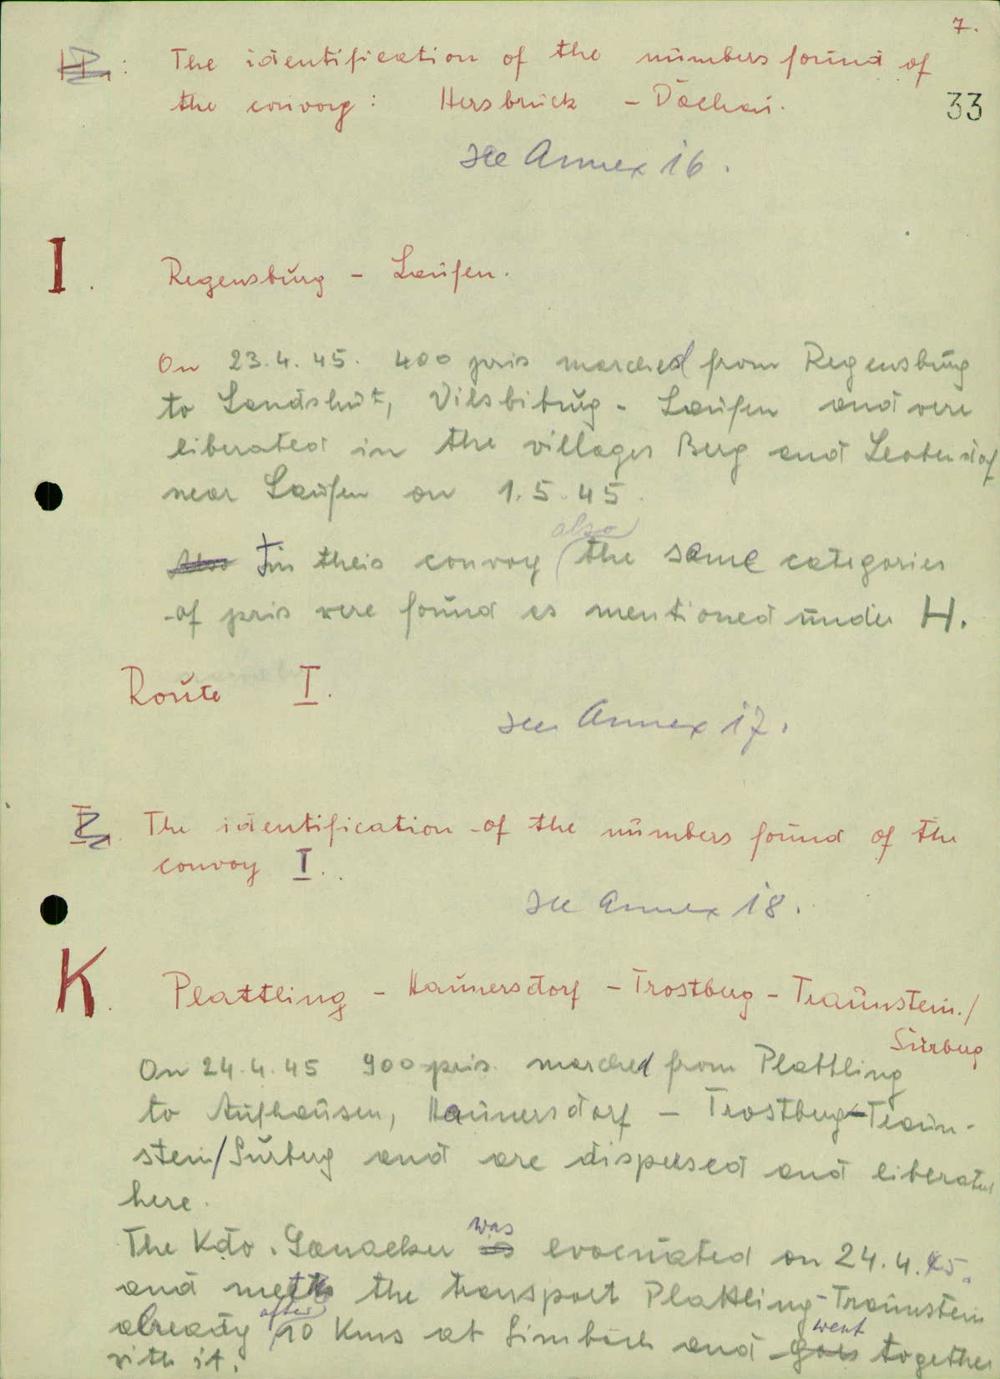 7.
The identification of the numbers found of
the convoy: Hersbruck - Dachau.
33
see Annex 16.
I. Regensburg - Laufen.
On 23.4.45. 400 pris marched from Regensburg
to Landshut, Vilsbibug - Laufen and were
liberated in the villages Berg and
near Laufen on 1.5.45.
also
In this convoy (the same categories
of pris were found as mentioned under H.
Route I.
see Annex 17.
The identification of the numbers found of the
convoy I.
see Annex 18.
K. Plattling - Haunersdorf - Trostberg - Traunstein./
Surberg
On 24.4.45 900 pris. marched from Plattling
to Aufhausen, Haunersdorf - Trostberg-Traun-
stein/Surberg and are dispersed and liberated
here.
was
The Kdo. Ganacker evacuated on 24.4.45.
and met the transport Plattling-Traunstein
after went
already 10 Kms at Simbach and goes together
with it.